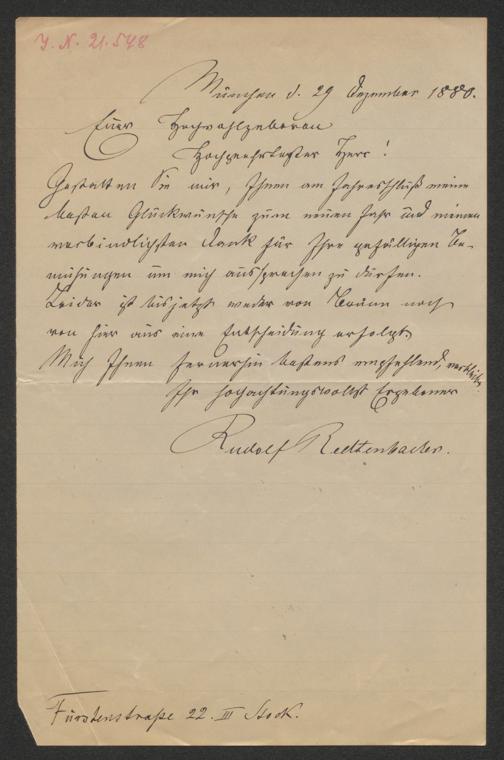 J. N. 21.548
München d. 29 Dezember 1880.
Euer Hochwohlgeboren
Hochgeehrtester Herr!
Gestatten Sie mir, Ihnen am Jahresschluß meine
besten Glückwünsche zum neuen Jahr und meinen
verbindlichsten Dank für Ihre gefälligen Be-
mühungen um mich aussprechen zu dürfen.
Leider ist bis jetzt weder von Brünn noch
von hier aus eine Entscheidung erfolgt.
Mich Ihnen fernerhin bestens empfehlend, verbleibe
Ihr hochachtungsvollst Ergebener
Rudolf Redtenbacher.
Fürstenstraße 22. III Stock.